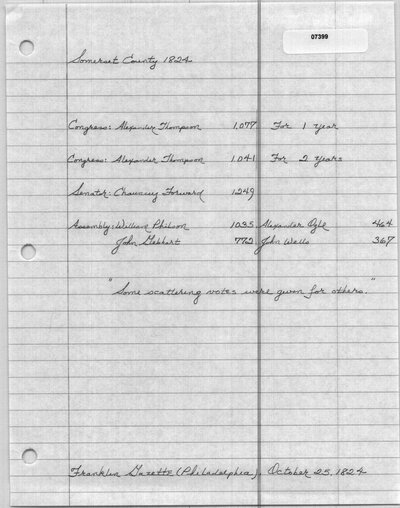 07399
Somerset County 1824
Congress: Alexander Thompson 1,077 For 1 Year
Congress: Alexander Thompson 1041 For 2 Years
Senator: Chauncey Forward 1249
Assembly: William Philson 1035 Alexander Ogle 464
John Gebhart 772 John Wells 367
"Some scattering votes were given for others."
Franklin Gazette (Philadelphia), October 25, 1824